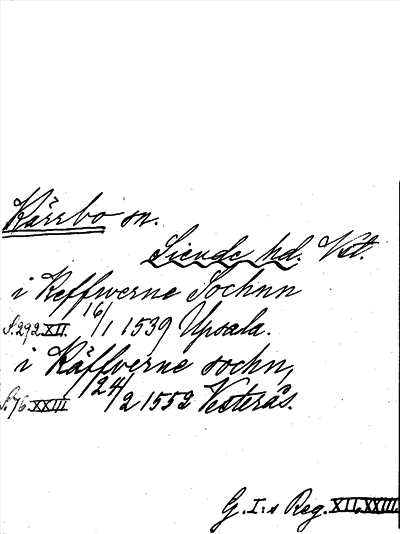 Kärrbo sn.
Siende hd. Vst.
i Keffwerne Sochnn
S. 292 XII. 16/1 1539 Upsala.
i Käffverne sochn,
S. 76 XXIII 24/2 1552 Vesterås.
G. I:s Reg. XII, XXIII.